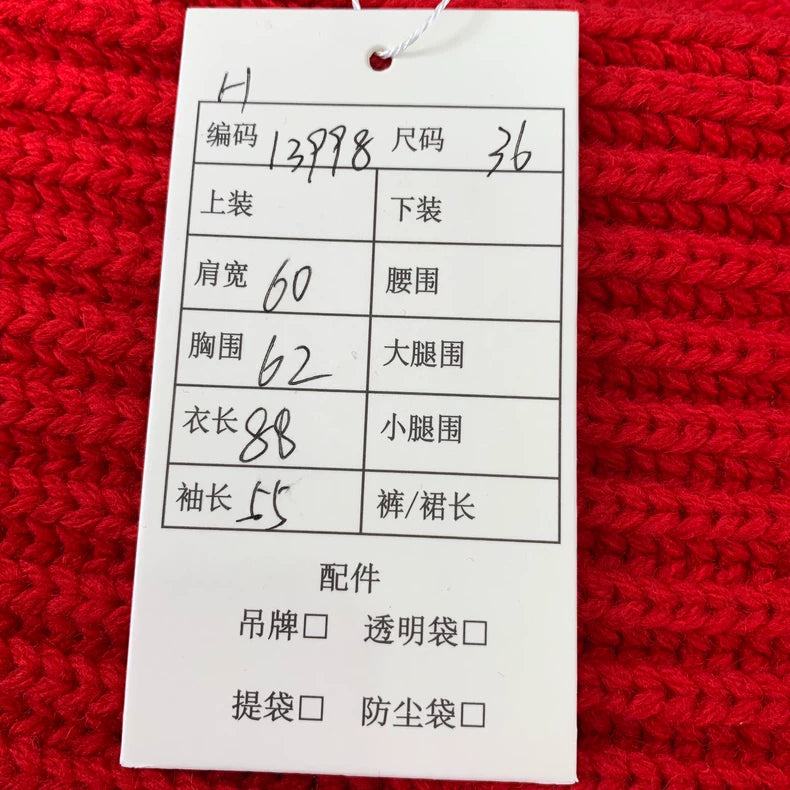 H
编码 13998 尺码 36
上装 下装
肩宽 60 腰围
胸围 62 大腿围
衣长 88 小腿围
袖长 55 裤/裙长
配件
吊牌□ 透明袋□
提袋□ 防尘袋□